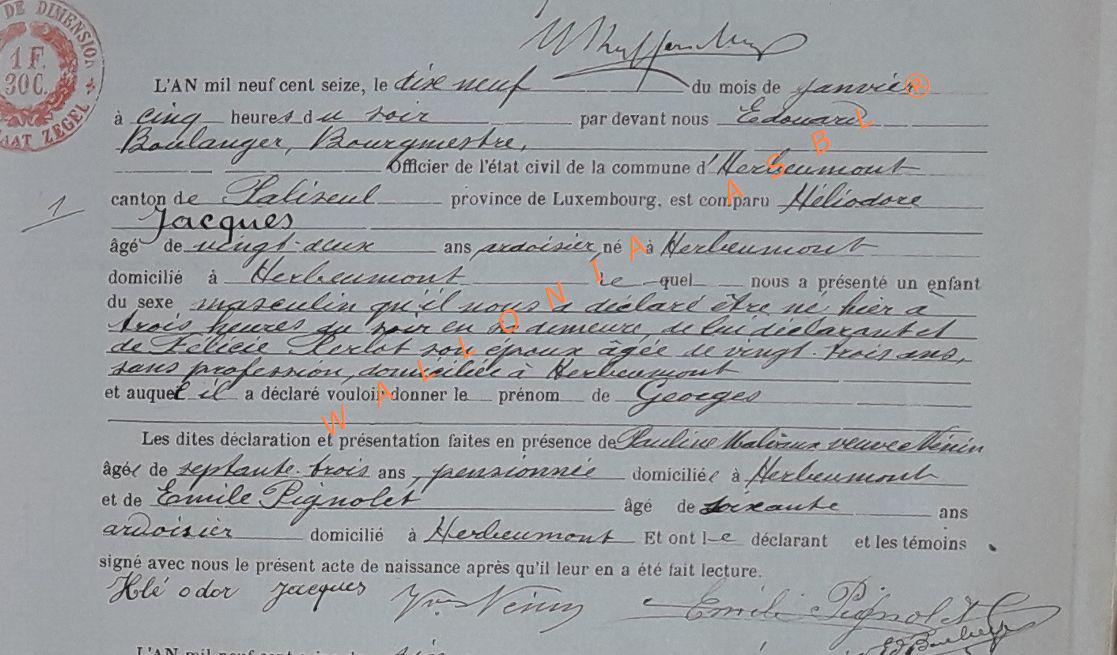 DE DIMENSION
1 F.
30 C.
ZEGEL
L'AN mil neuf cent seize, le dixe neuf du mois de janvier
à cinq heures du soir par devant nous Edouard
Boulanger, Bourgmestre,
Officier de l'état civil de la commune d'Herbeumont
canton de Paliseul province de Luxembourg, est comparu Héliodore
1
Jacques
âgé de vingt-deux ans ardoisier, né à Herbeumont
domicilié à Herbeumont lequel nous a présenté un enfant
du sexe masculin qu'il nous a déclaré être né hier à
trois heures du soir en sa demeure, de lui déclarant et
de Félicie Perlot son époux âgée de vingt-trois ans,
sans profession, domiciliée à Herbeumont
et auquel il a déclaré vouloir donner le prénom de Georges
Les dites déclaration et présentation faites en présence de Pauline veuve Nénin
âgée de septante-trois ans, pensionnée domiciliée à Herbeumont
et de Emile Pignolet âgé de soixante ans
ardoisier domicilié à Herbeumont Et ont le déclarant et les témoins
signé avec nous le présent acte de naissance après qu'il leur en a été fait lecture.
Hlé odor Jacques Vve Nénin Emile Pignolet
Ed Boulanger
L'AN mil neuf cent seize
WALLONIA ASBL ®